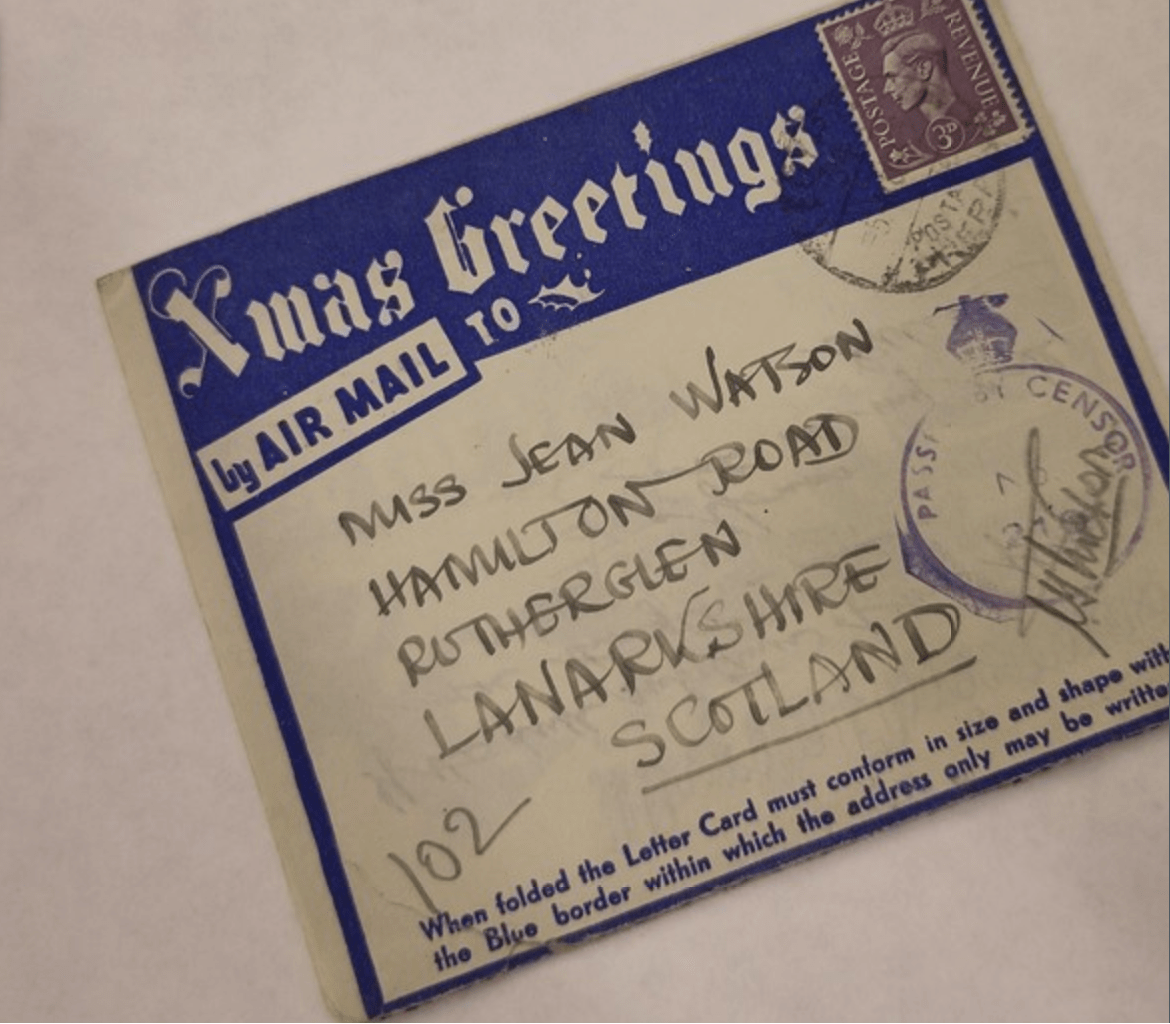 POSTAGE REVENUE
3D
Xmas Greetings
by AIR MAIL TO
POSTA
MISS JEAN WATSON
HAMILTON ROAD
RUTHERGLEN
LANARKSHIRE
SCOTLAND
BY CENSOR
102
When folded the Letter Card must conform in size and shape with
the Blue border within which the address only may be